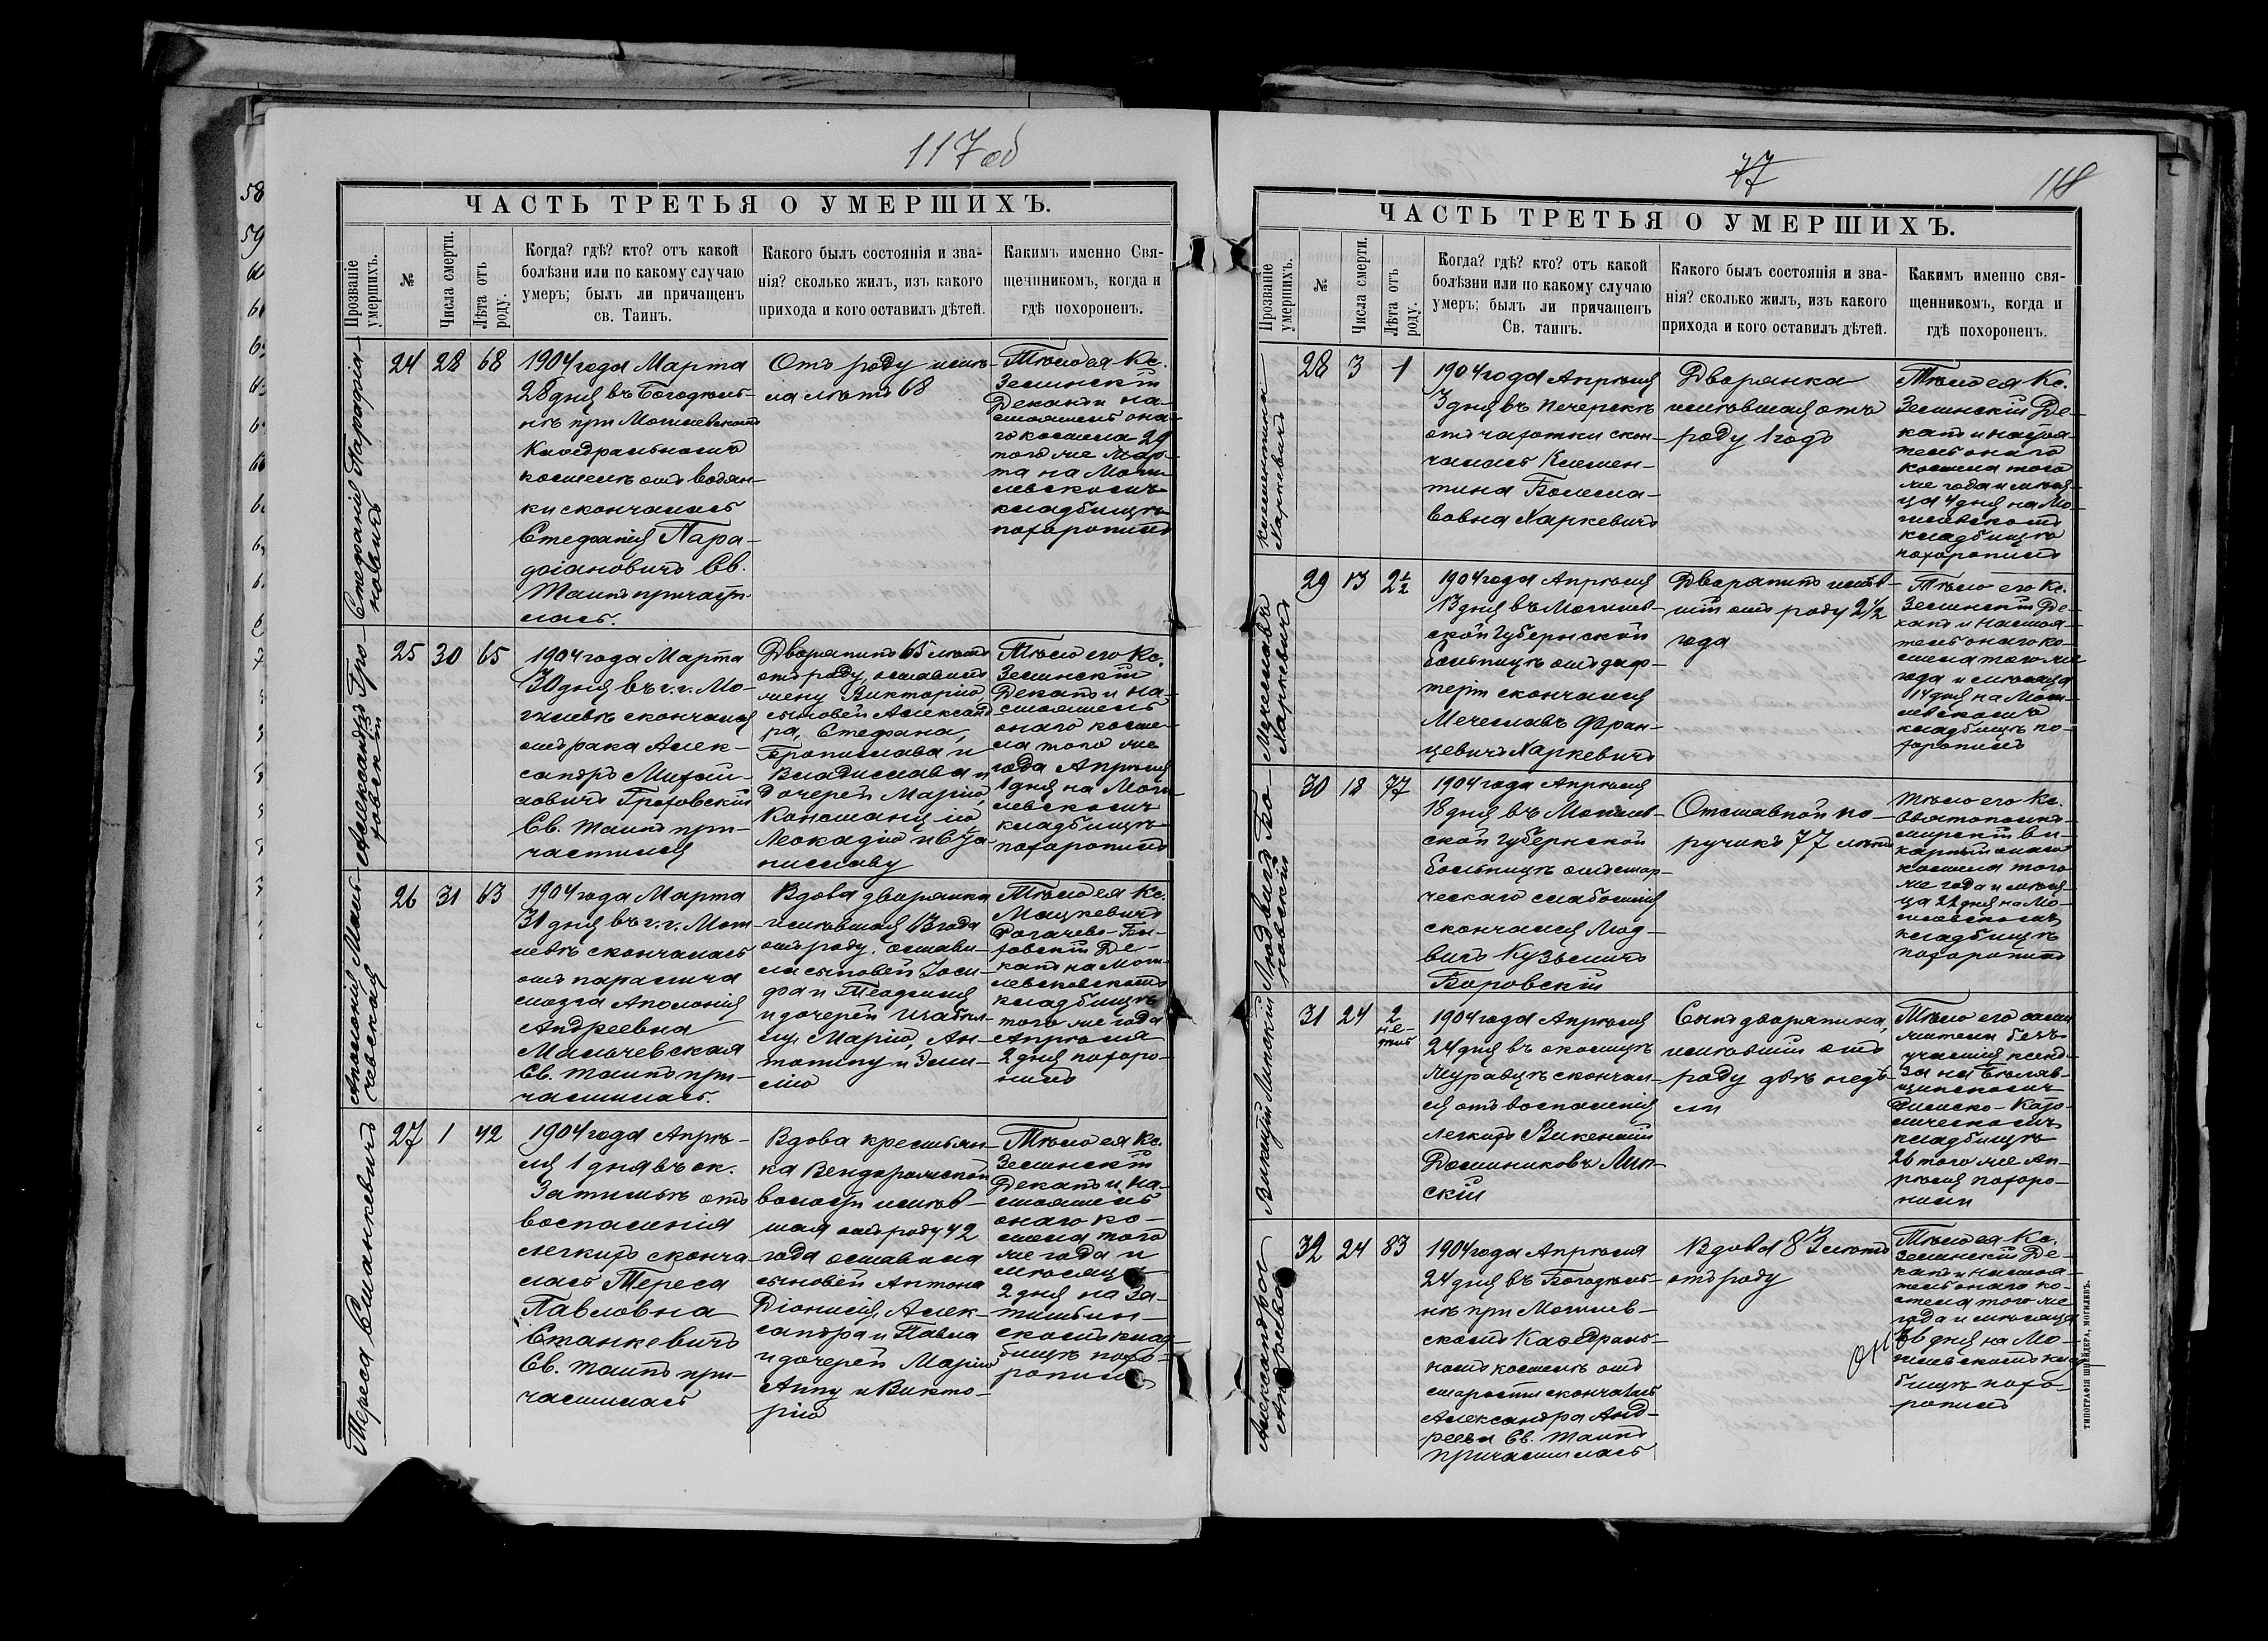 117 об
ЧАСТЬ ТРЕТЬЯ О УМЕРШИХЪ.
Прозваніе умершихъ.
№
Числа смерти.
Лѣта отъ роду.
Когда? гдѣ? кто? отъ какой
болѣзни или по какому случаю
умеръ; былъ ли причащенъ
св. Таинъ.
Какого былъ состоянія и зва-
нія? сколько жилъ, изъ какого
прихода и кого оставилъ дѣтей.
Каким именно Свя-
щенникомъ, когда и
гдѣ похороненъ.
Стефанія Парафіа-
новичъ
24
28
68
1904 года Марта
28 дня въ Богодѣль-
нѣ при Могилевскомъ
Каѳедральномъ
костелѣ отъ водян-
ки скончалась
Стефанія Пара-
фіановичъ Св.
Таинъ причасти-
лась.
Отъ роду имѣ-
ла лѣтъ 68
Тѣло ея Кс.
Зелинскій
Деканъ и на-
стоятель она-
го костела 29
того же Мар-
та на Моги-
левскомъ
кладбищѣ
похоронилъ
Александръ Гро-
ховскій
25
30
65
1904 года Марта
30 дня въ г. г. Мо-
гилевѣ скончался
отъ рака Алек-
сандръ Михай-
ловичъ Гроховскій
Св. Таинъ при-
частился
Дворянинъ 65 лѣтъ
отъ роду, оставилъ
жену Викторію,
сыновей Александ-
ра, Стефана,
Бронислава и
Владислава и
дочерей Марію,
Констанцію
Леокадію и Ста-
ниславу
Тѣло его Кс.
Зелинскій
Деканъ и На-
стоятель
онаго косте-
ла того же
года Апрѣля
1 дня на Моги-
левскомъ
кладбищѣ
похоронилъ
Аполонія Маль-
чевская
26
31
63
1904 года Марта
31 дня въ г. г. Моги-
левѣ скончалась
отъ паралича
мозга Аполонія
Андреевна
Мальчевская
Св. Таинъ при-
частилась.
Вдова дворянка
имѣвшая 63 года
отъ роду. Остави-
ла сыновей Іоси-
фа и Теофиля
и дочерей Изабел-
лу, Марію, Ан-
тонину и Эми-
лію
Тѣло ея Кс.
Мацкевичъ
Рогачево-Бы-
ховскій Де-
канъ на Моги-
левскомъ
кладбищѣ
того же года
Апрѣля
2 дня похоро-
нилъ
Тереса Станкевичъ
27
1
42
1904 года Апрѣ-
ля 1 дня въ ок.
Затишьѣ отъ
воспаленія
легкихъ сконча-
лась Тереса
Павловна
Станкевичъ
Св. Таинъ при-
частилась
Вдова крестьян-
ка Вендорожской
волости имѣв-
шая отъ роду 42
года оставила
сыновей Антона
Діонисія, Алек-
сандра и Павла
и дочерей Марію
Анну и Викто-
рію
Тѣло ея Кс.
Зелинскій
Деканъ и На-
стоятель
онаго ко-
стела того
же года и
мѣсяца
2 дня на За-
тишьин-
скомъ клад-
бищѣ похо-
ронилъ
77
118
ЧАСТЬ ТРЕТЬЯ О УМЕРШИХЪ.
Прозваніе умершихъ.
№
Числа смерти.
Лѣта отъ роду.
Когда? гдѣ? кто? отъ какой
болѣзни или по какому случаю
умеръ; былъ ли причащенъ
Св. таинъ.
Какого былъ состоянія и зва-
нія? сколько жилъ, изъ какого
прихода и кого оставилъ дѣтей.
Каким именно свя-
щенникомъ, когда и
гдѣ похороненъ.
Клементина
Харкевичъ
28
3
1
1904 года Апрѣля
3 дня въ Печерскѣ
отъ чахотки скон-
чалась Клемен-
тина Болесла-
вовна Харкевичъ
Дворянка
имѣвшая отъ
роду 1 годъ
Тѣло ея Кс.
Зелинскій Де-
канъ и Настоя-
тель онаго
костела того
же года и мѣся-
ца 4 дня на Мо-
гилевскомъ
кладбищѣ
похоронилъ
Мечеславъ
Харкевичъ
29
13
2½
1904 года Апрѣля
13 дня въ Могилев-
ской Губернской
больницѣ отъ диф-
теріи скончался
Мечеславъ Фран-
цевичъ Харкевичъ
Дворянинъ имѣв-
шій отъ роду 2½
года
Тѣло его Кс.
Зелинскій Де-
канъ и Настоя-
тель онаго ко-
стела того же
года и мѣсяца
14 дня на Моги-
левскомъ
кладбищѣ по-
хоронилъ
Людвигъ Бо-
ровскій
30
18
77
1904 года Апрѣля
18 дня въ Могилев-
ской Губернской
больницѣ отъ стар-
ческаго слабосилія
скончался Люд-
вигъ Кузьмичъ
Боровскій
Отставной по-
ручикъ 77 лѣтъ
Тѣло его Кс.
Святополкъ-
Мирскій ви-
карный онаго
костела того
же года и мѣся-
ца 22 дня на Мо-
гилевскомъ
кладбищѣ
похоронилъ
Викентій Липскій
31
24
2
не-
дѣль
1904 года Апрѣля
24 дня въ околицѣ
Журавцѣ скончал-
ся отъ воспаленія
легкихъ Викентій
Доминиковъ Лип-
скій
Сынъ дворянина,
имѣвшій отъ
роду двѣ недѣ-
ли
Тѣло его
жители безъ
участія ксенд-
за на
Римско-Като-
лическомъ
кладбищѣ
26 того же Ап-
рѣля похоро-
нили
Александра
Андреева
32
24
83
1904 года Апрѣля
24 дня въ Богодѣль-
нѣ при Могилев-
скомъ Каѳедраль-
номъ костелѣ отъ
старости скончалась
Александра Анд-
реева Св. Таинъ
причастилась
Вдова 83 лѣтъ
отъ роду
Тѣло ея Кс.
Зелинскій Де-
канъ и Настоя-
тель онаго ко-
стела того же
года и мѣсяца
26 дня на Мо-
гилевскомъ клад-
бищѣ похо-
ронилъ
ТИПОГРАФІЯ ШНЕЙДЕРА, МОГИЛЕВЪ.